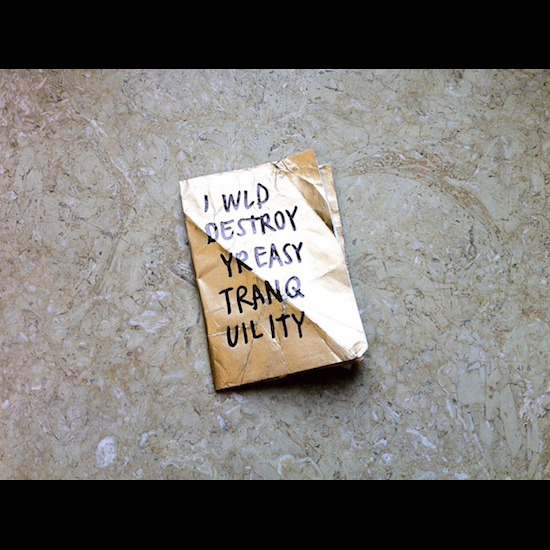 I WLD
DESTROY
YR EASY
TRANQ
UILITY